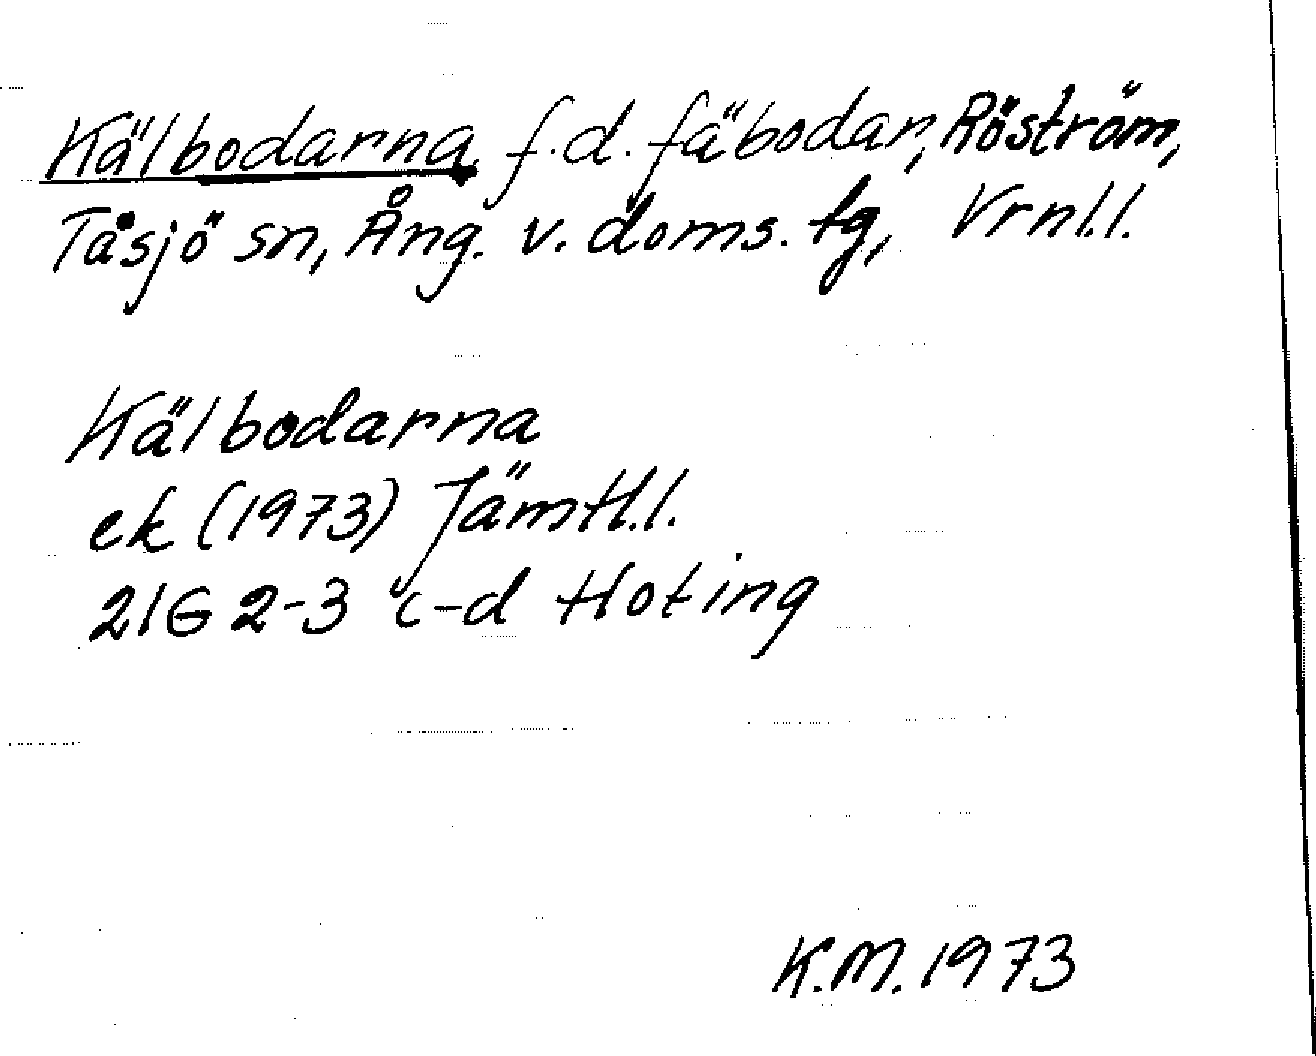 Kälbodarna f.d. fäbodar, Röström,
Tåsjö sn, Ång. v. doms. tg, Vrnl.l.
Kälbodarna
ek (1973) Jämtl.l.
21G 2-3 c-d Hoting
K.M. 1973